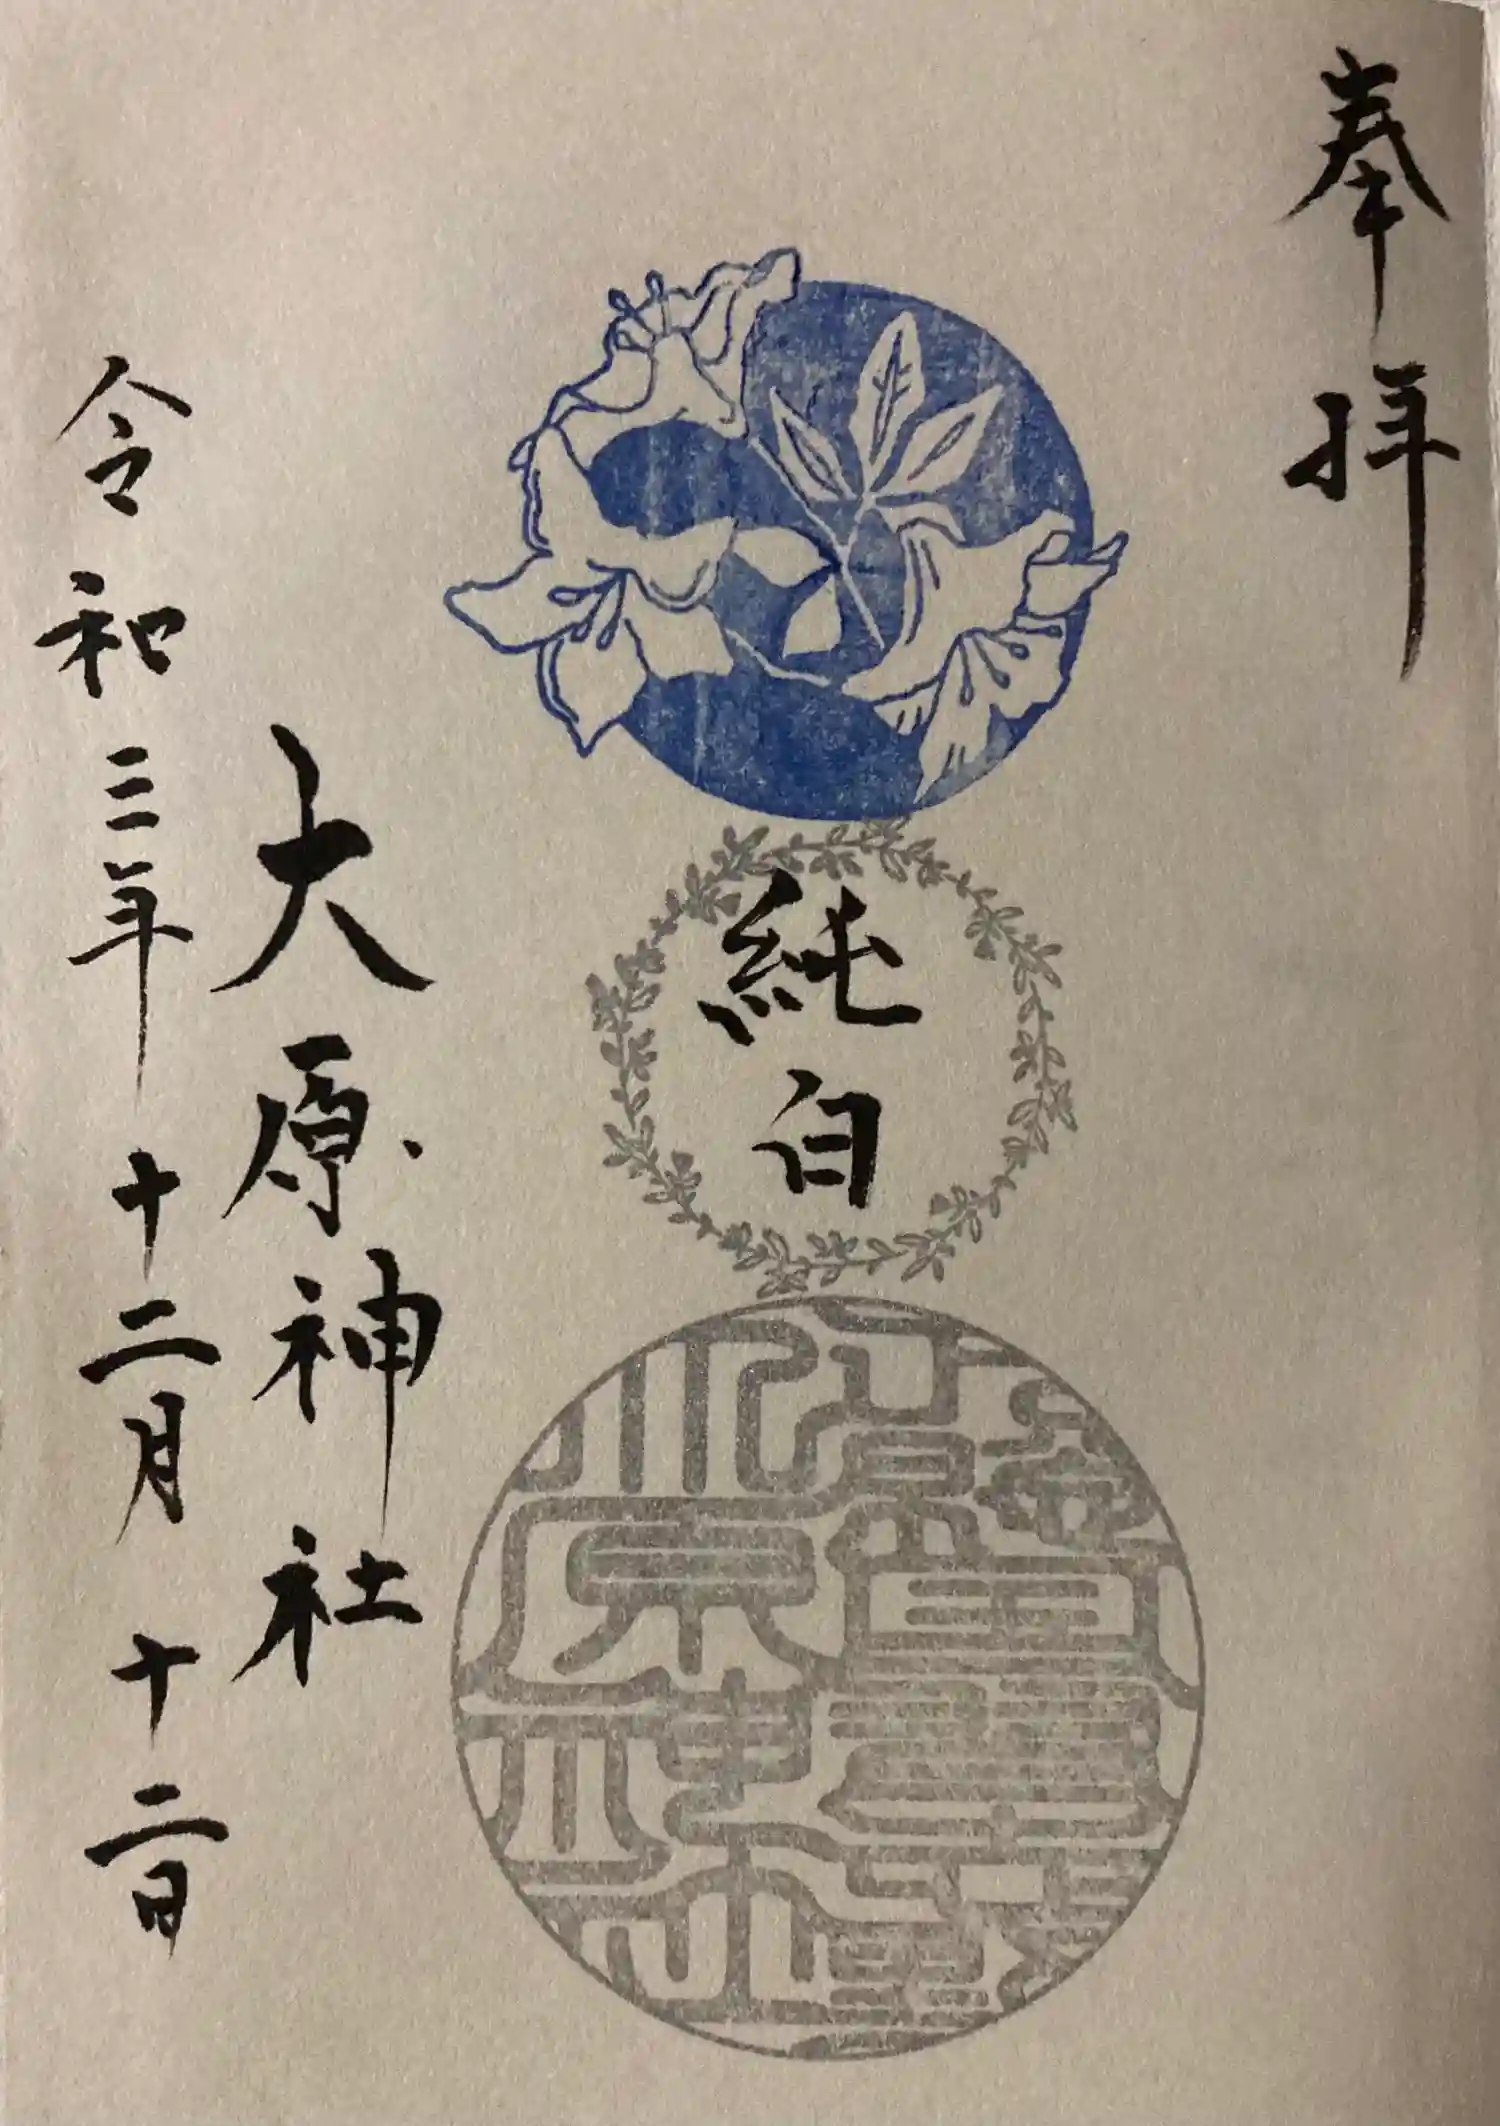 奉拝
純白
大原神社
令和三年十二月十二日